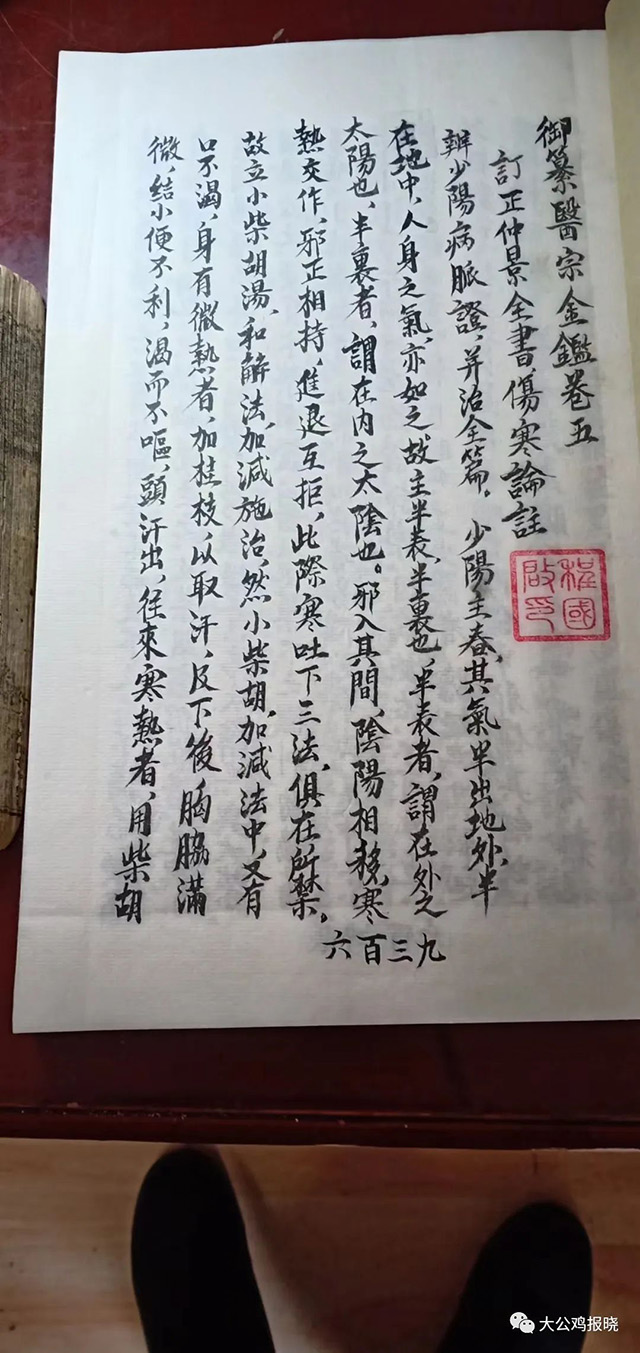 御纂醫宗金鑑卷五
訂正仲景全書，傷寒論註
辨少陽病脈證，并治全篇。少陽主春，其氣半出地外，半
在地中，人身之氣，亦如之。故主半表，半裏也，半表者，謂在外之
太陽也，半裏者，謂在內之太陰也。邪入其間，陰陽相移，寒
熱交作，邪正相持，進退互拒，此際寒吐下三法，俱在所禁。
故立小柴胡湯，和解法，加減施治，然小柴胡，加減法中，又有
口不渴，身有微熱者，加桂枝，以取汗，及下後，胸脇滿
微，結小便不利，渴而不嘔，頭汗出，往來寒熱者，用柴胡
六百三九
程國啟印
大公鸡报晓